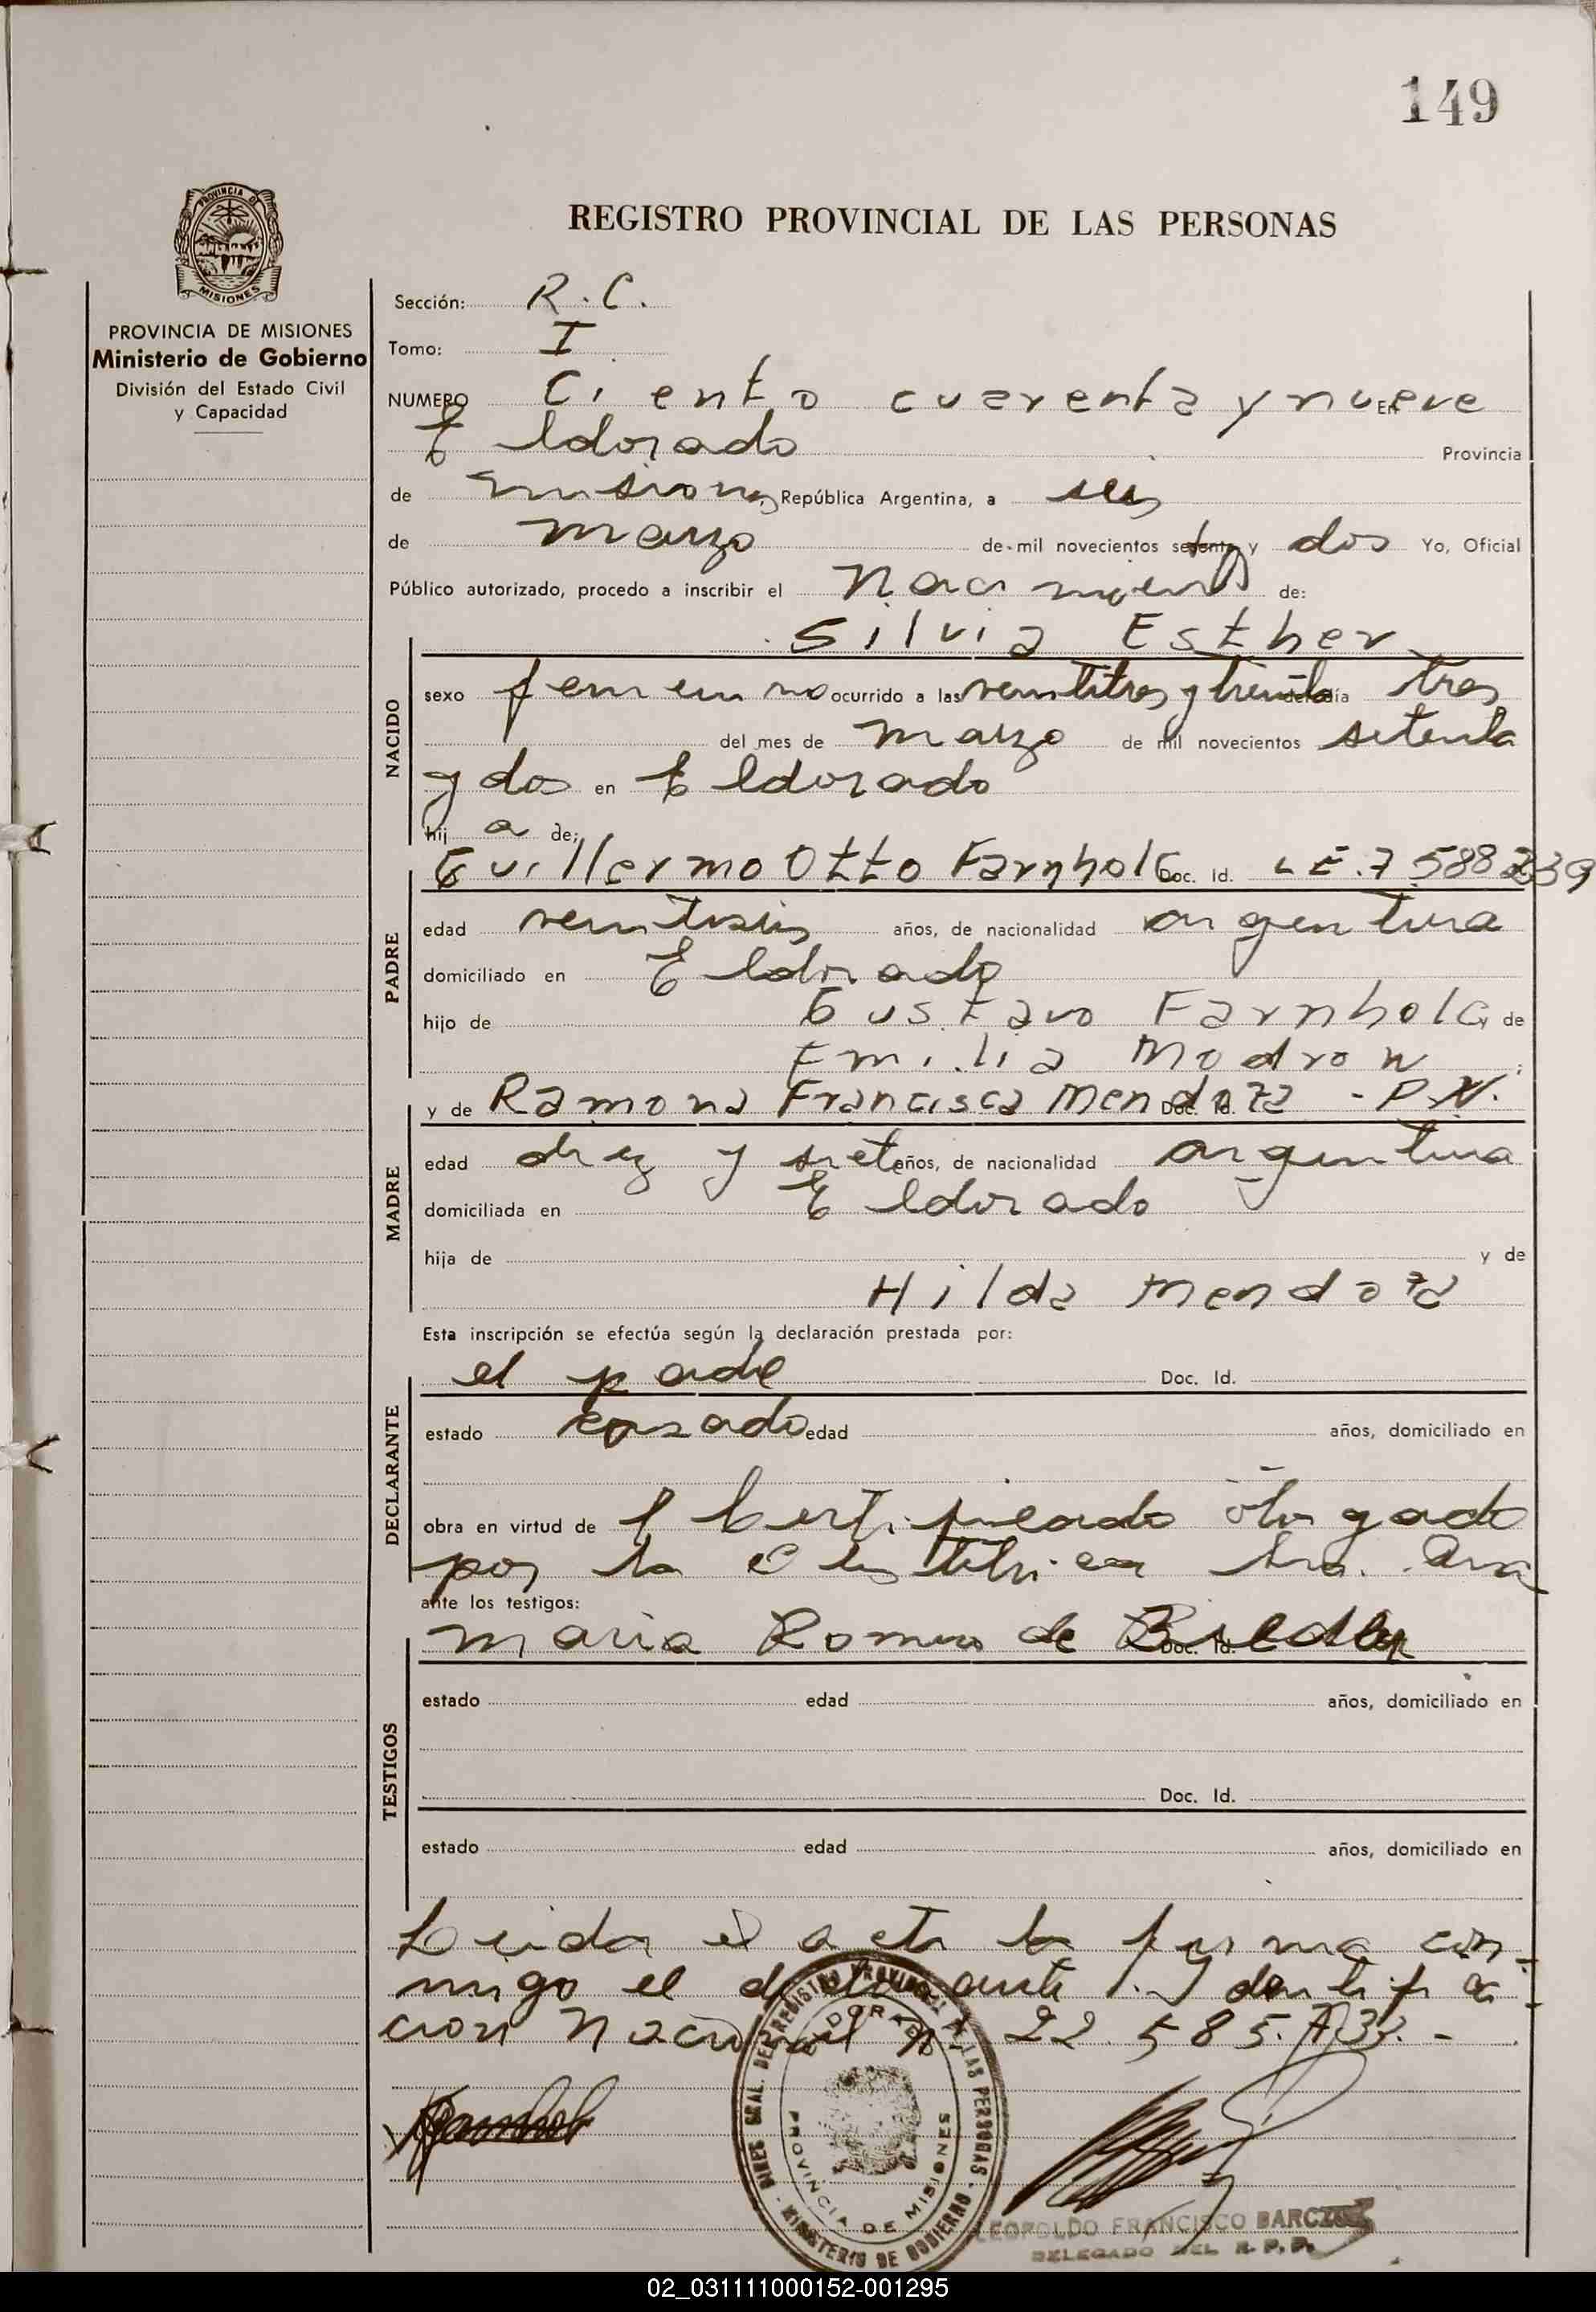 149
PROVINCIA DE
MISIONES
PROVINCIA DE MISIONES
Ministerio de Gobierno
División del Estado Civil
y Capacidad
REGISTRO PROVINCIAL DE LAS PERSONAS
Sección: R. C.
Tomo: I
NUMERO Ciento cuarenta y nueve En
Eldorado Provincia
de misiones República Argentina, a seis
de marzo de mil novecientos setenta y dos Yo, Oficial
Público autorizado, procedo a inscribir el Nacimiento de:
Silvia Esther
NACIDO
sexo femenino ocurrido a las veintitres y treinta del día tres
del mes de marzo de mil novecientos setenta
y dos en Eldorado
hij a de:
Guillermo Otto Farnholc Doc. Id. L E. 7 588 239
PADRE
edad veintiseis años, de nacionalidad argentina
domiciliado en Eldorado
hijo de Gustavo Farnholc y de
Emilia Modrow ;
y de Ramona Francisca Mendoza Doc. Id. - P. N.
MADRE
edad diez y siete años, de nacionalidad argentina
domiciliada en Eldorado
hija de y de
Hilda Mendoza
Esta inscripción se efectúa según la declaración prestada por:
el padre Doc. Id.
DECLARANTE
estado casado edad años, domiciliado en
obra en virtud de Certificado otorgado
por la Obstétrica Sra. Ana
ante los testigos:
maria Romero de Doc. Id.
TESTIGOS
estado edad años, domiciliado en
Doc. Id.
estado edad años, domiciliado en
Leida el acta la firma con
migo el declarante. Identifica
cion Nacional Nº 22.585.733.-
DIREC. GRAL. DEL REGISTRO PROVINCIAL DE LAS PERSONAS
ELDORADO
PROVINCIA DE MISIONES
MINISTERIO DE GOBIERNO
LEOPOLDO FRANCISCO
DELEGADO DEL R. P. P.
02_031111000152-001295